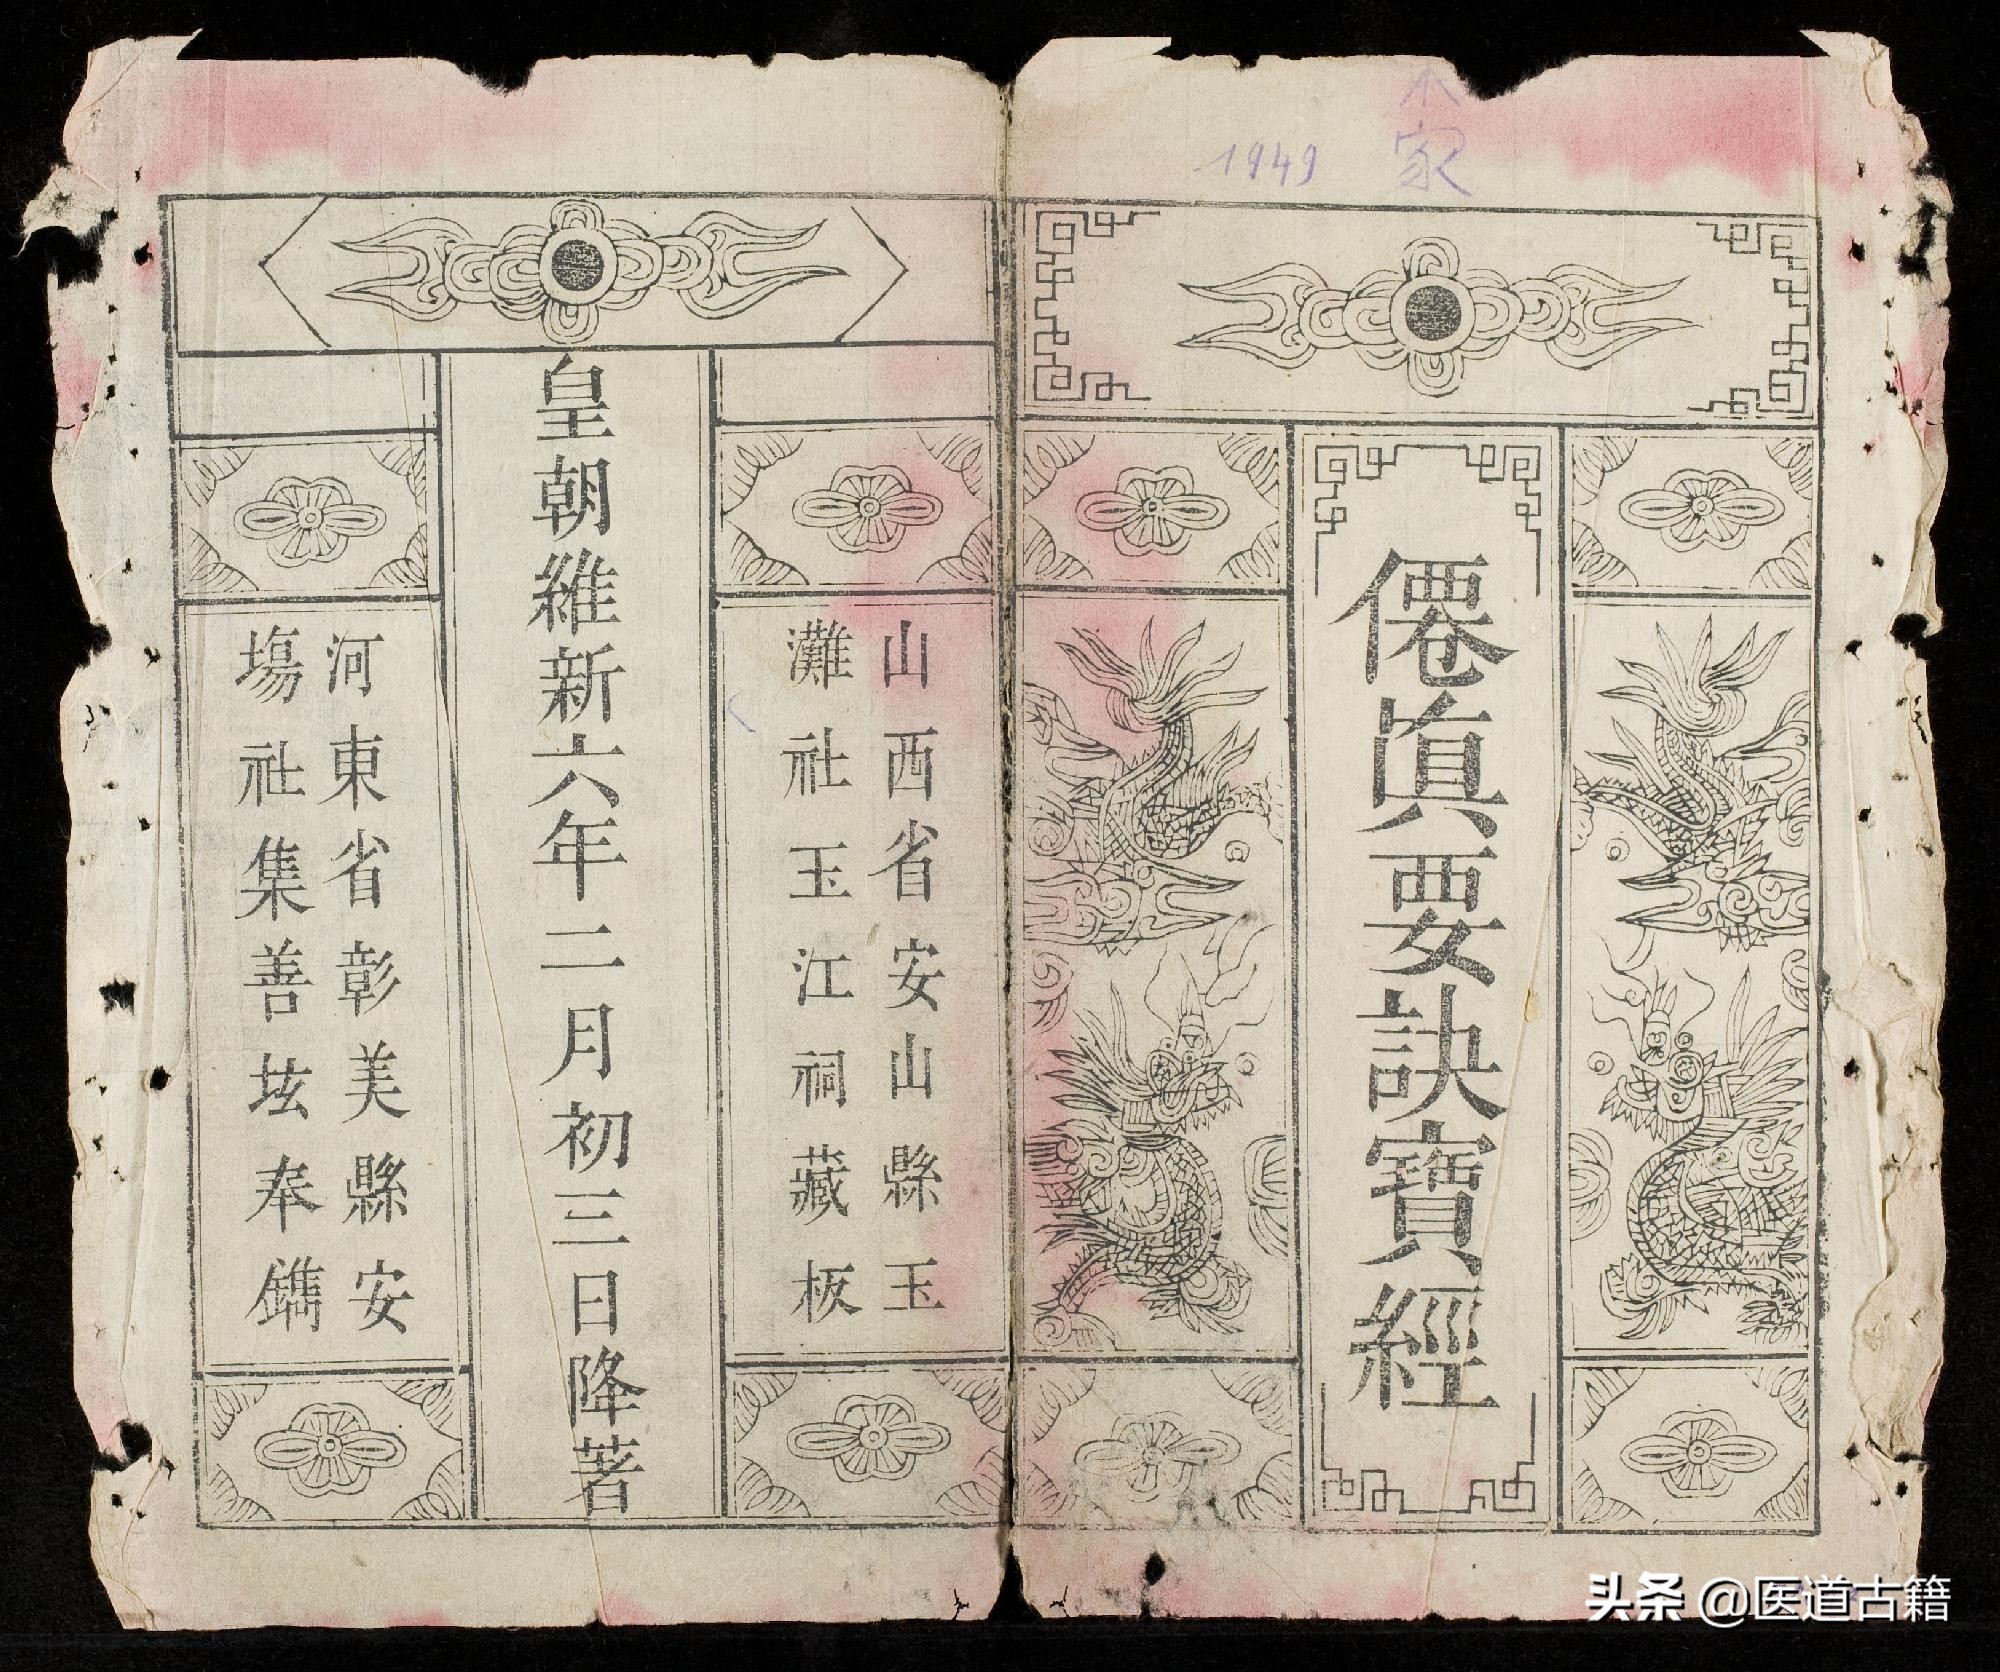 1949
家
僊眞要訣寶經
山西省安山縣玉
灘社玉江祠藏板
皇朝維新六年二月初三日降著
河東省彰美縣安
塲社集善坛奉鐫
头条 @医道古籍